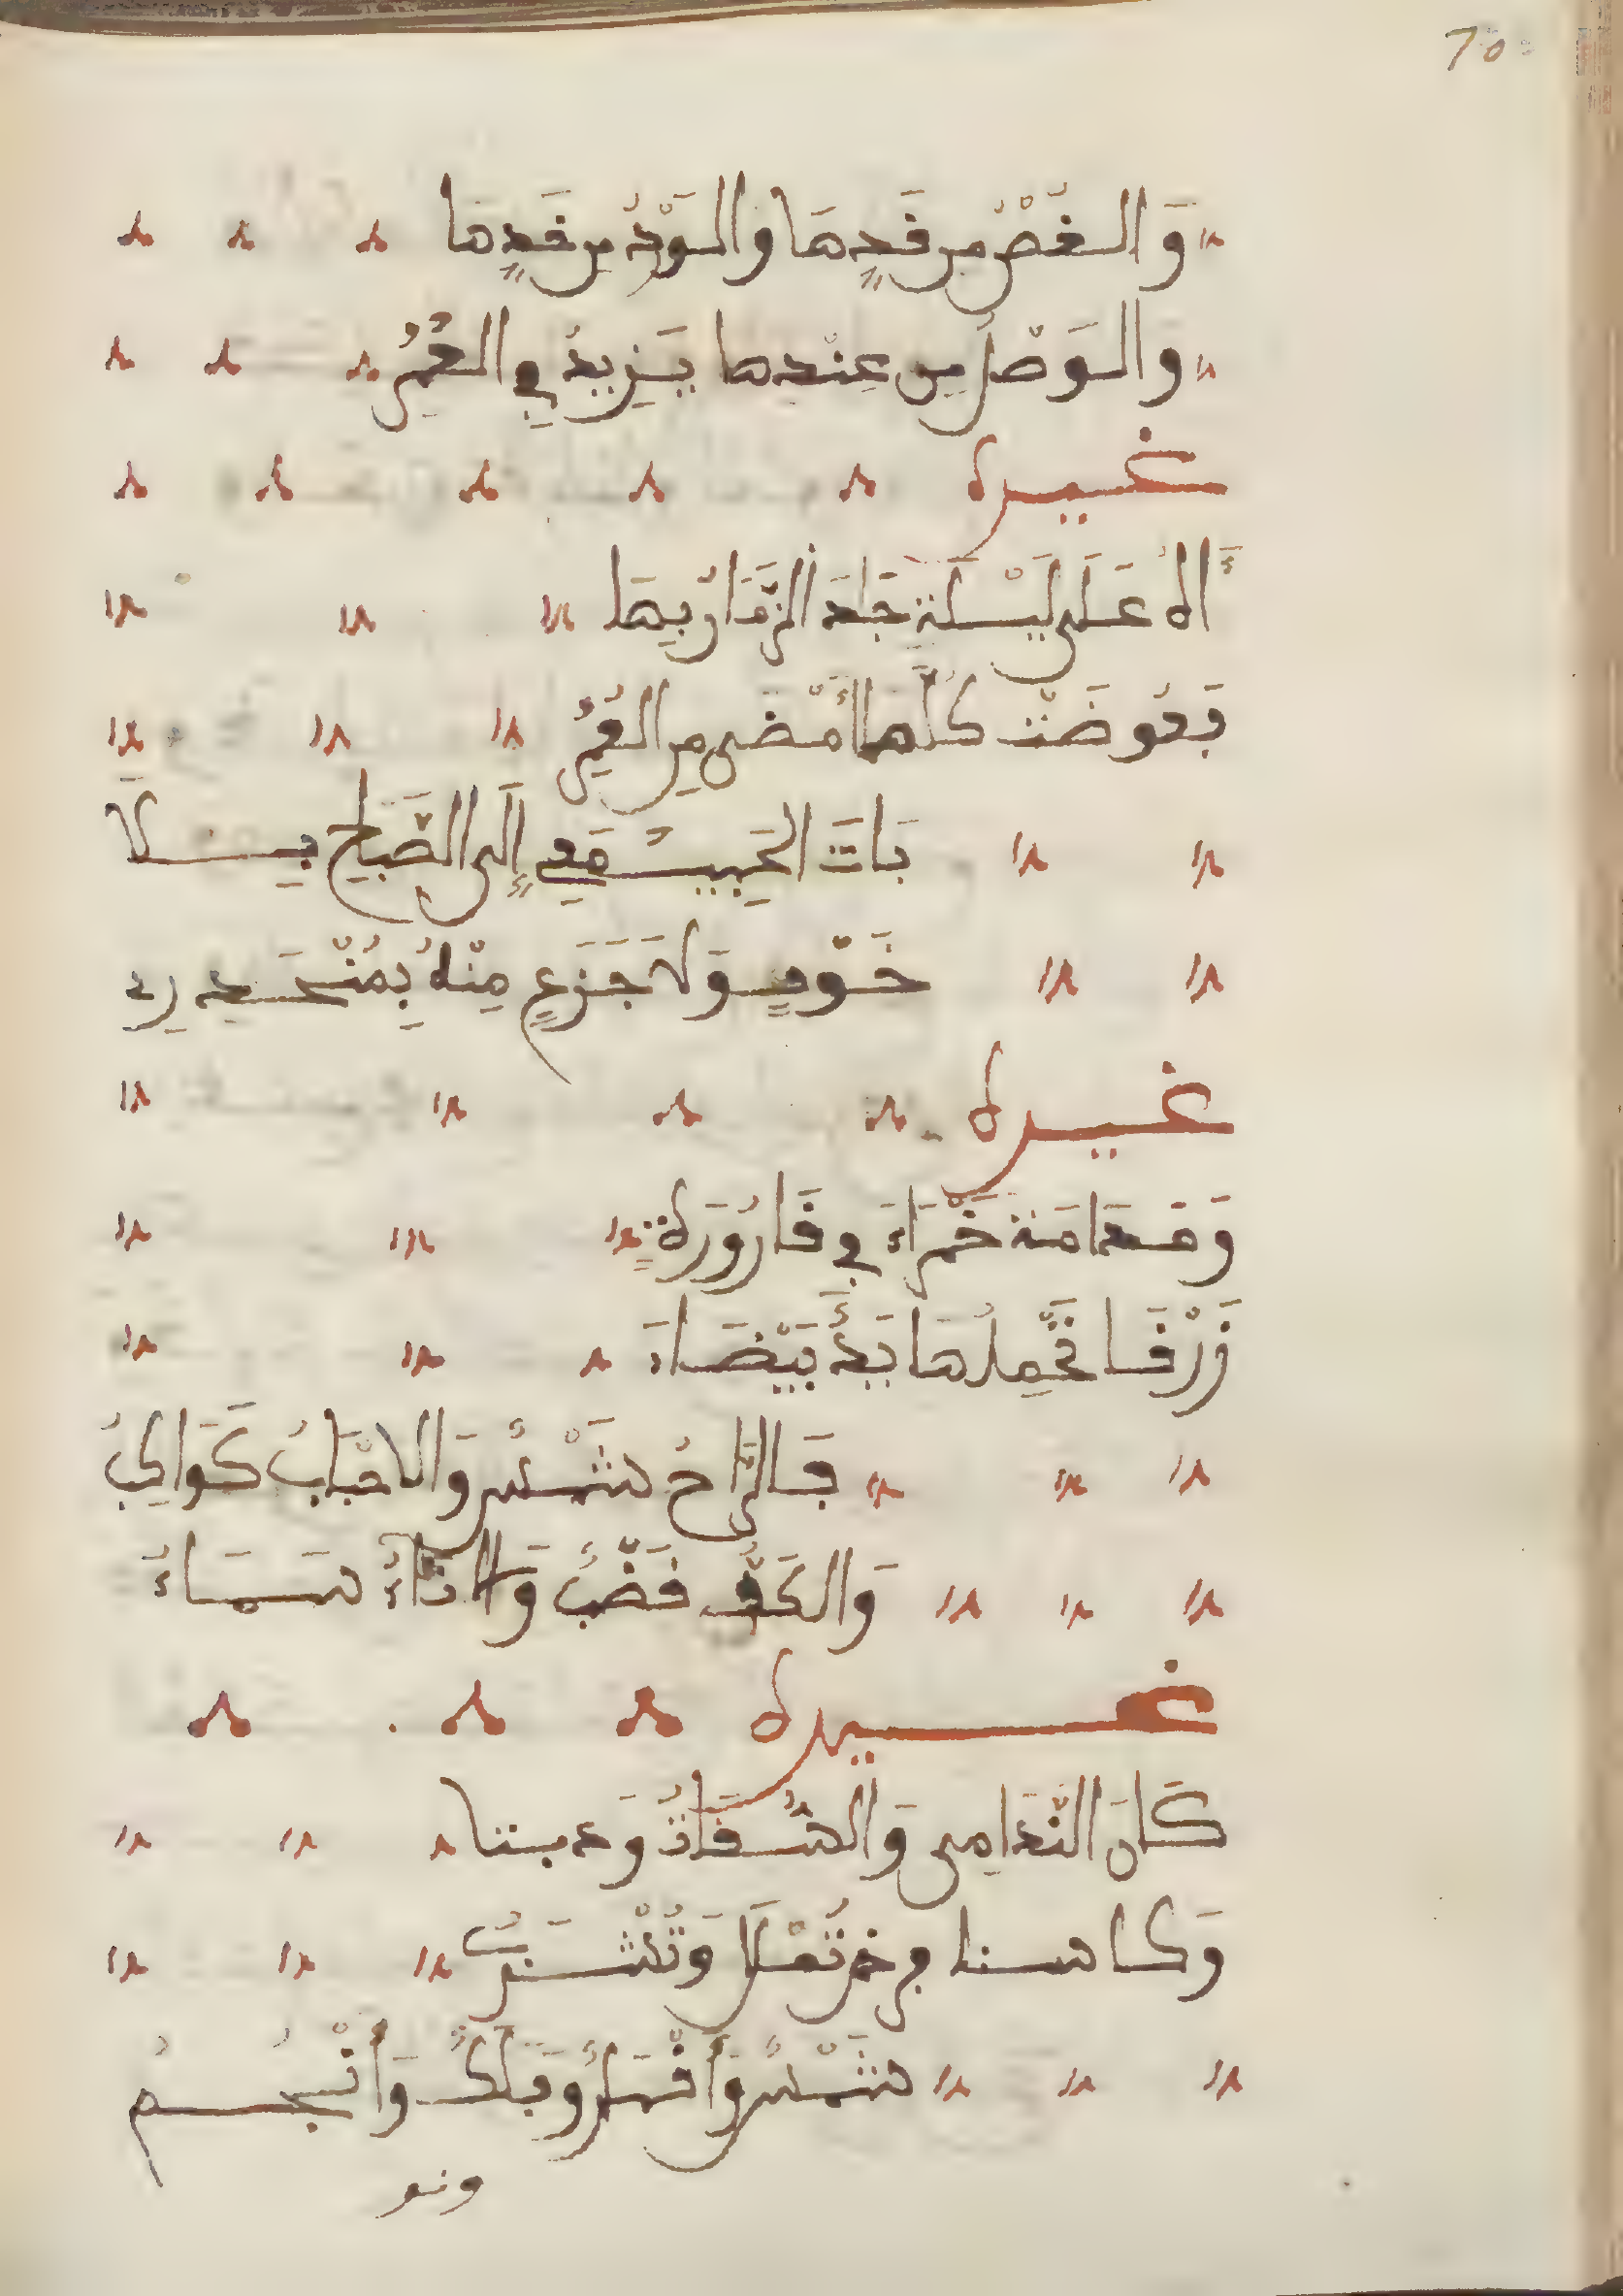 70
وَالغُصْنُ مِن قَدِّهَا وَالوَرْدُ مِن خَدِّهَا
وَالوَصْلُ مِن عِنْدِهَا يَزِيدُ فِي العُمُرِ
غيره
اللهُ عَلَى لَيْلَةٍ جَادَ الزَّمَانُ بِهَا
فَعُوضَتْ كُلَّمَا أَمْضَى مِن العُمُرِ
بَاتَ الحَبِيبُ مَعِي إِلَى الصَّبَاحِ بِلَا
خَوْفٍ وَلَا جَزَعٍ مِنْهُ بِمُنْحَدِرِ
غيره
وَمُدَامَة حَمْرَاءَ فِي قَارُورَةٍ
زَرْقَا تَحْمِلُهَا يَدٌ بَيْضَاءَ
فَالرَّاحُ شَمْسٌ وَالاحْبَابُ كَوَاكِبُ
وَالكَفُّ قُضْبٌ وَالانَاءُ سَمَاءُ
غيره
كَانَ النَّدَامِى وَالسُّقَاةُ وَدِينِنا
وَكَاسنا مِن خمر تُمْلَا وَتُشْرَبُ
شَمْسٌ وَأَقْمَارٌ وَفَلَكٌ وَأَنْجُمُ